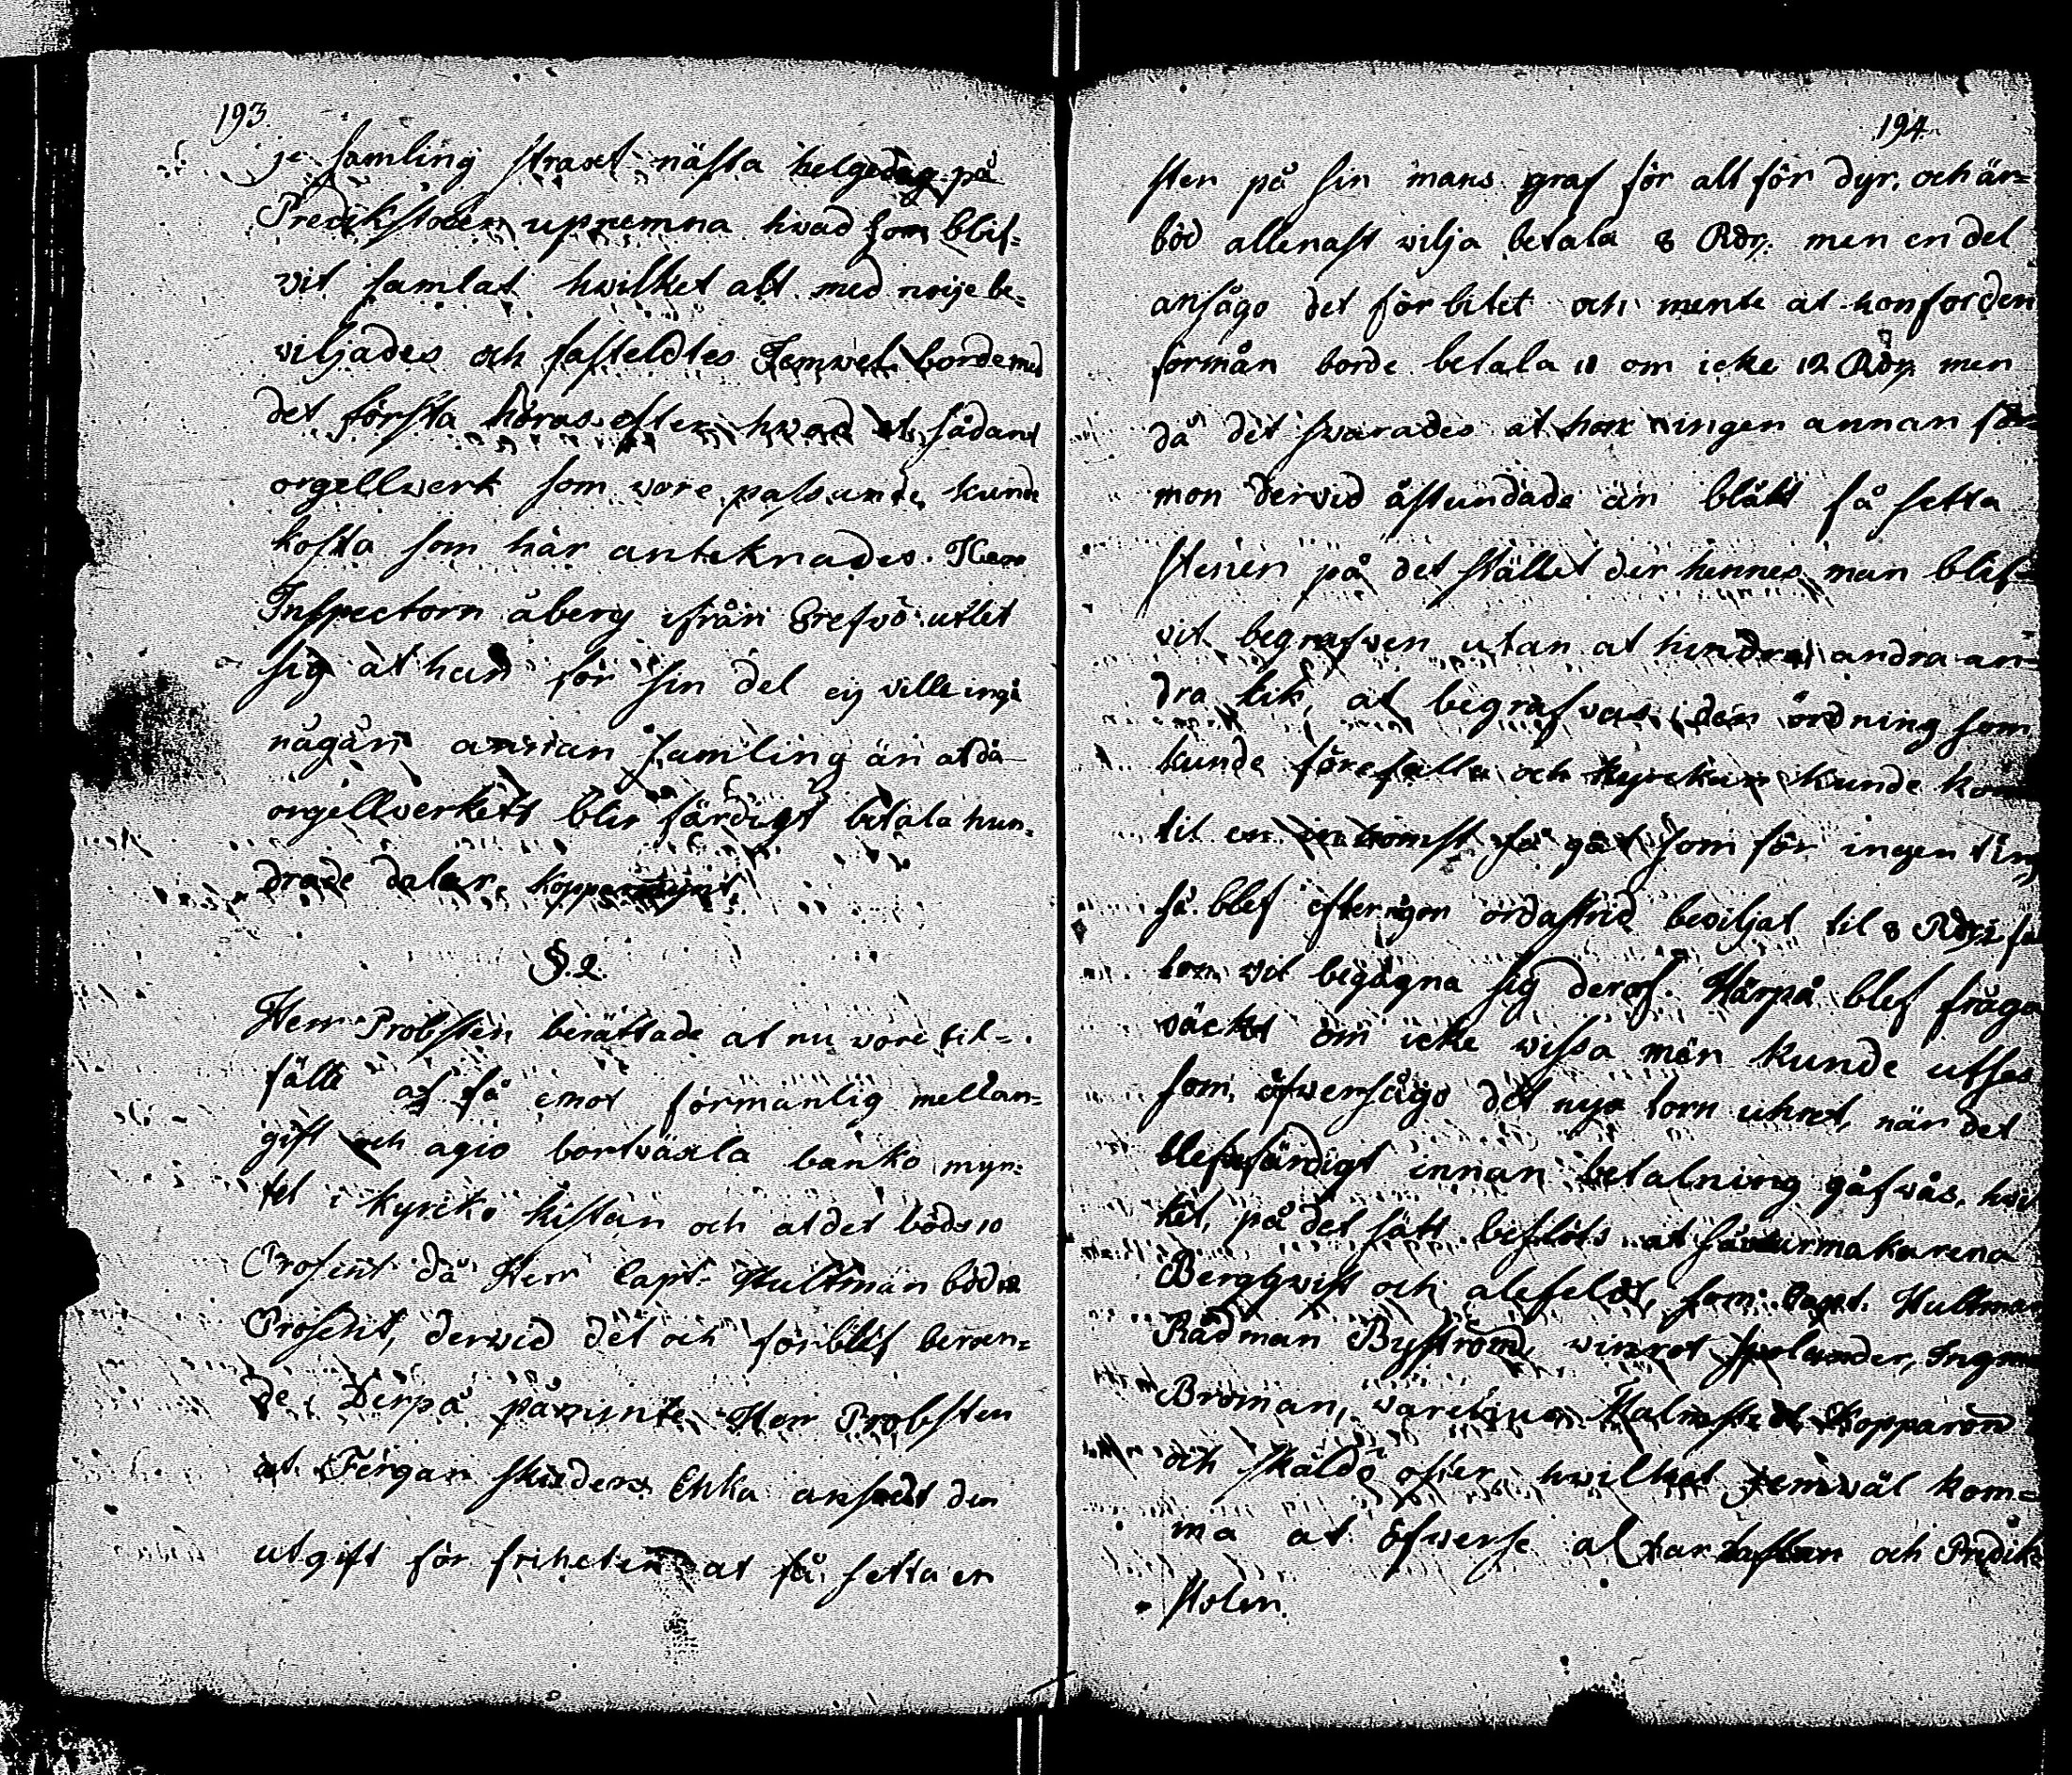 193.
je samling straxt nästa helgedag på
Predikstolen upnemna hvad som blif-
vit samlat hwilket alt med nöje be-
viljades och fasteldtes Jemwel borde med
det första höras efter hwad et sådant
orgellwerk som wore passande kunde
kosta som här anteknades. Herr
Inspectorn åberg ifrån Grefwö utlet
sig at han för sin del ej ville ingå
någån annan samling än at då
orgellverkett blir färdigt betala hun-
drade daler koppermynt.
§. 2.
Herr Probsten berättade at nu wore til-
fälle at få emot förmånlig mellan-
gift och agio bortväxla banko myn-
tet i kyrko kistan och at det böds 10
Prosent då Herr Capt. Hultman böd 12
Prosent, derwid det och förblef beroen-
de. Derpå påmynte Herr Probsten
at Färgan Enka ansedt den
utgift för friheten at få setta en
194.
sten på sin mans graf för alt för dyr, och är-
böd allenast wilja betala 8 Rdr. men en del
ansågo det för litet och mente at hon for den
formån borde betala 11 om icke 12 Rdr. men
då det swarades at hon ingen annan för-
mon derwid åstundade än blått få setta
stenen på det stället der hennes man blif-
vit begrafwen utan at hindra andra an-
dra lik, at begrafwas i den ordning som
kunde förefalla och kyrckan kunde kom
til en inkomst så god som för ingen ting
så blef efter någon ordastrid beviljat til 8 Rdr.
hon wil begagna sig deraf. Härpå blef fråga
väckt om icke wissa män kunde utses
som öfwersågo det nya torn uhret, när det
blefwe färdigt innan betalning gåfwas, hvil
ket, på det sätt beslöts at såsom urmakarena
Bergqwist och alefeldt, som Capt. Hultman
Rådman Byström, Ingman
Broman, Kopparön
och Skäldö ofser, hwilket jemwäl kom-
ma at öfwerse altar taflan och Predik
stolen.